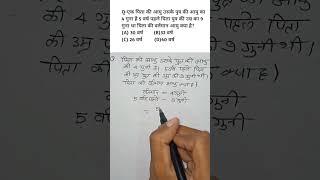 Q-एक पिता की आयु उसके पुत्र की आयु का
4 गुना है 5 वर्ष पहले पिता पुत्र की उम्र का 9
गुना था पिता की वर्तमान आयु क्या है?
(A) 30 वर्ष (B)32 वर्ष
(C) 26 वर्ष (D)60 वर्ष
पिता की आयु उसके पुत्र की आयु
की 4 गुनी है। 5 वर्ष पहले पिता
की उम्र पुत्र की उम्र की 9 गुनी थी।
पिता की वर्तमान आयु क्या है।
वर्तमान = 4 गुनी
5 वर्ष पहले - 9 गुनी
=